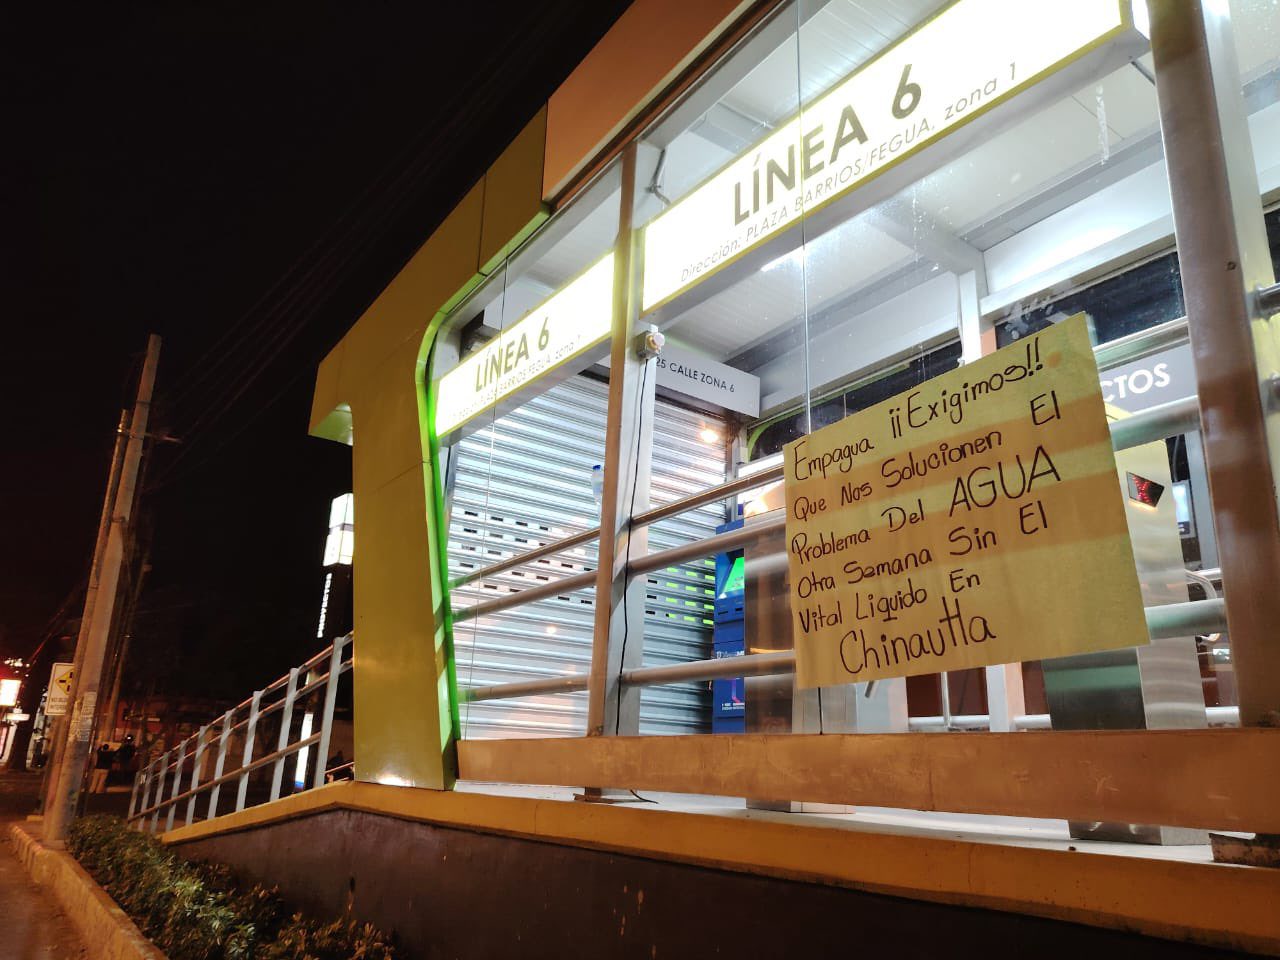 LÍNEA 6
Dirección: PLAZA BARRIOS/FEGUA, zona 1
LÍNEA 6
PLAZA BARRIOS/FEGUA, zona 1
25 CALLE ZONA 6
CTOS
Empagua ¡¡Exigimos!!
Que Nos Solucionen El
Problema Del AGUA
Otra Semana Sin El
Vital Liquido En
Chinautla